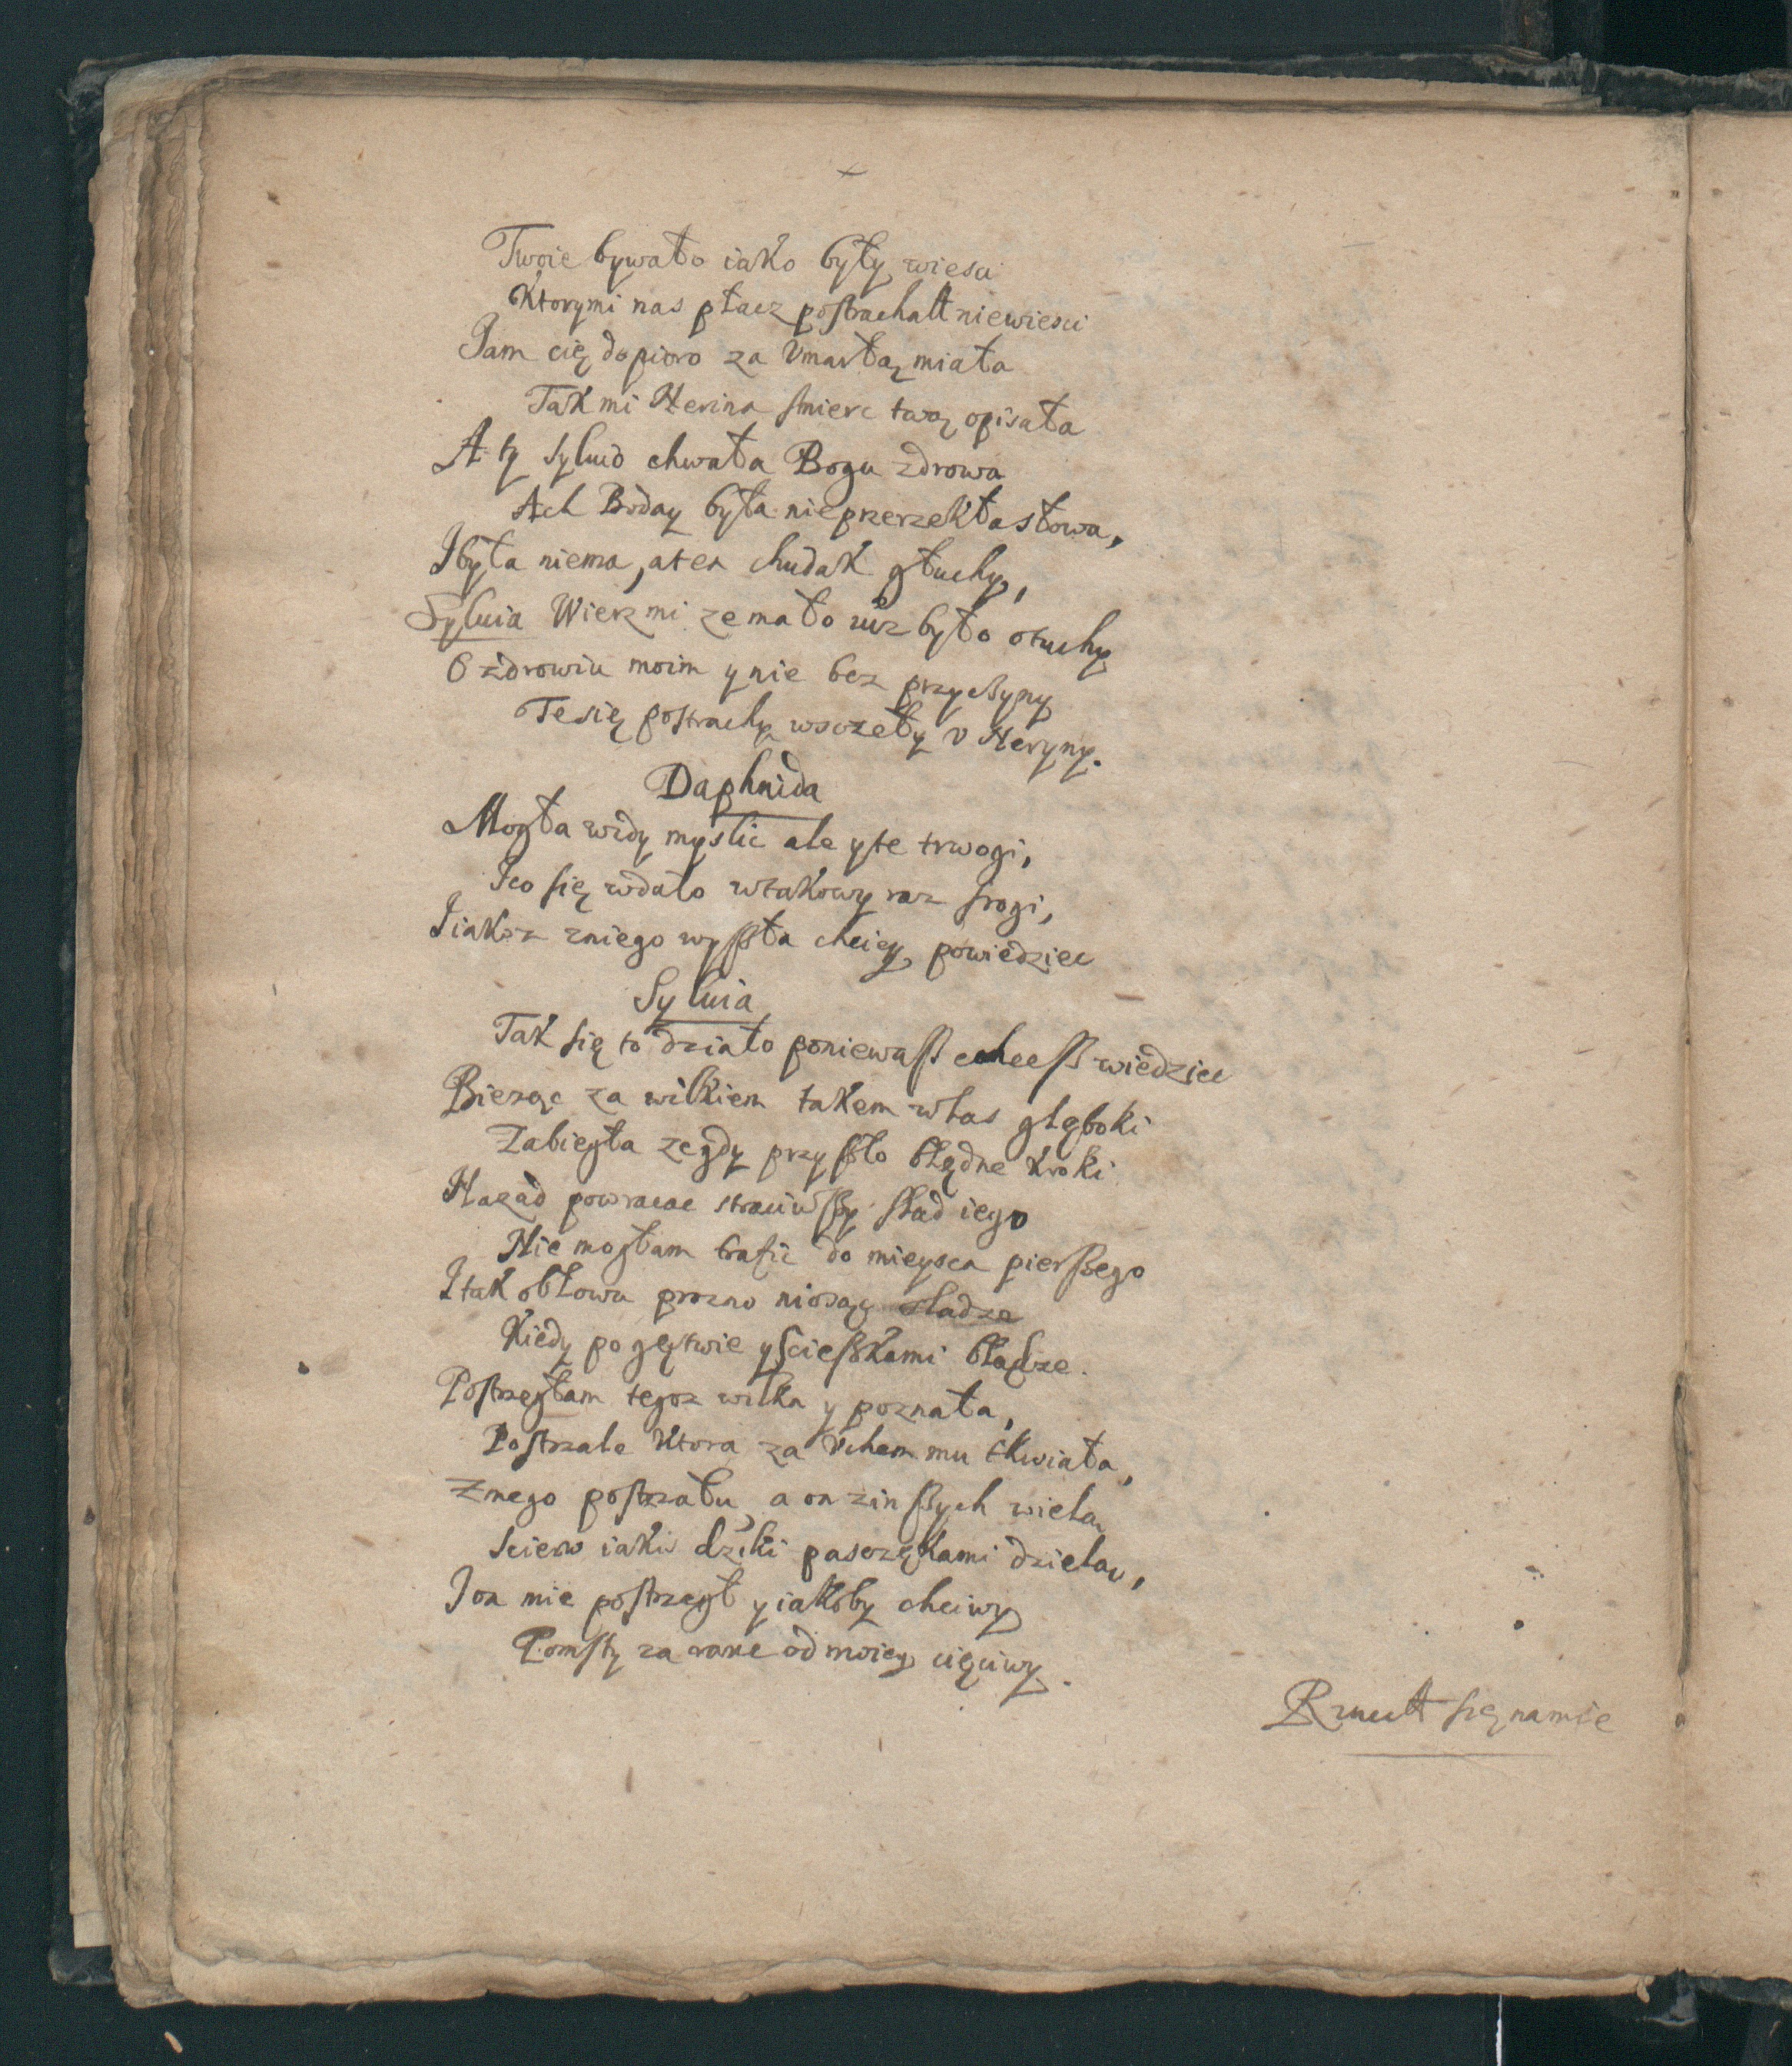 Twoie bywało iako były wiesci
Ktorymi nas płacz postrachałł niewiesci
Jam cię dopioro za Vmarłą miała
Tak mi Nerina smierc twą opisała
A ty sylvio chwała Bogu zdrowa
Ach Boday była nieprzerzekła słowa,
J była niema, a ten chudak głuchy,
Sylvia Wierz mi ze mało iuz było otuchy
O zdrowiu moim y nie bez przyczyny
Te się postrachy wsczeły v Neryny.
Daphnida
Mogła widy myslic ale y te trwogi,
J co się wdało w takowy raz srogi,
J iakoz z niego wyszła chciey powiedziec
Sylvia
Tak się to działo poniewasz chcesz wiedziec
Bieząc za wilkiem takem w las głęboki
Zabiegła ze gdy przyszło błędne kroki
Nazad powracac straciwszy slad iego
Nie mogłam trafic do mieysca pierszego
J tak obłowu prozno niosąc sladze
Kiedy po gęstwie y scieszkami błądze.
Postrzegłam tegoz wilka y poznała,
Postrzale ktora za Vchem mu tkwiała,
Z mego postrzału a on z inszych wielą
Scierw iakis dziki pasczękami dzielą,
J on mie postrzegł y iakoby chciwy
Pomsty za rane od moiey cięciwy.
Rzucił się na mie